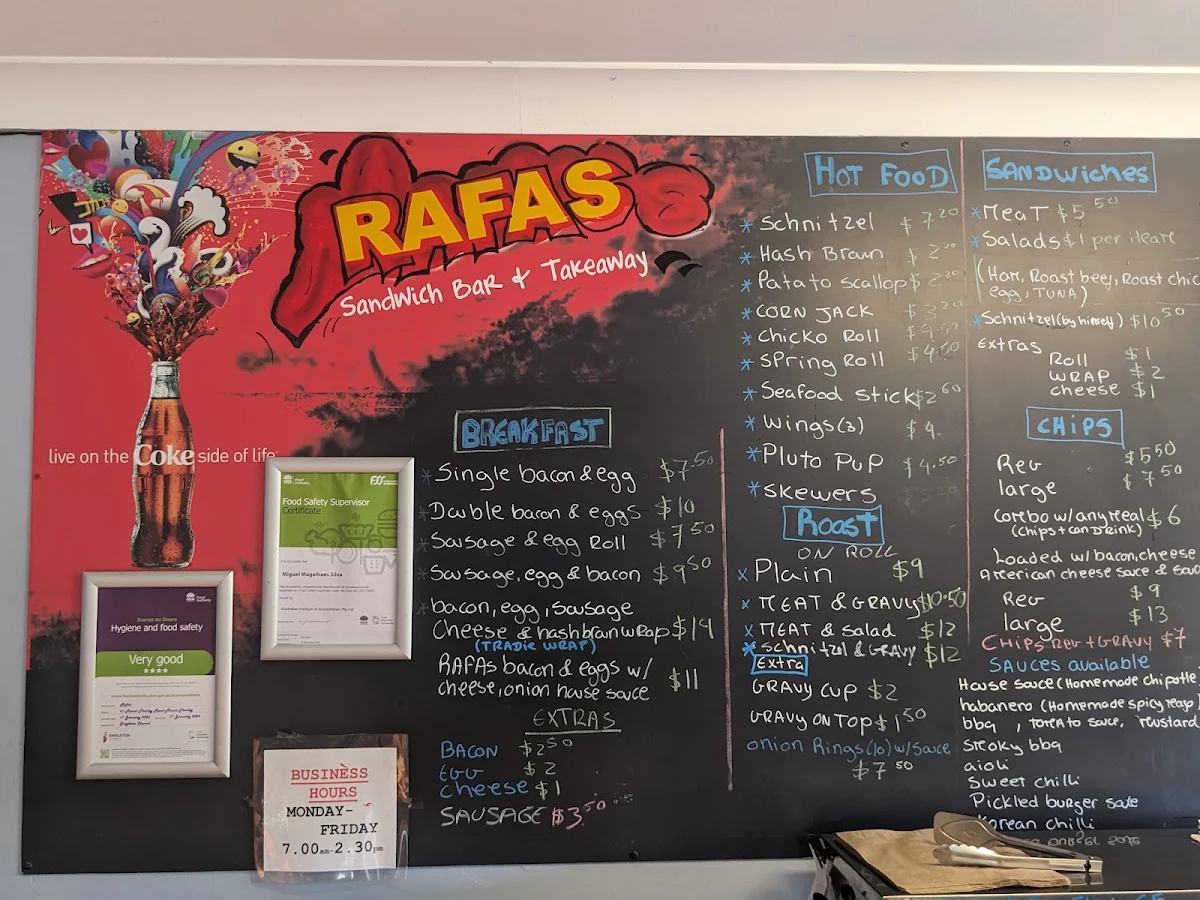 RAFAS
Sandwich Bar & Takeaway
live on the Coke side of life
Food Safety Supervisor
Certificate
Miguel Magalhaes Silva
Hygiene and food safety
Very good
BUSINESS
HOURS
MONDAY-
FRIDAY
7.00am-2.30pm
BREAKFAST
* Single bacon & egg $7.50
* Double bacon & eggs $10
* Sausage & egg Roll $7.50
* Sausage, egg & bacon $9.50
* bacon, egg, Sausage
Cheese & hashbran wrap $14
(TRADIE WRAP)
RAFAs bacon & eggs w/
cheese, onion house sauce $11
EXTRAS
BACON $2.50
EGG $2
cheese $1
SAUSAGE $3.50
HOT FOOD
* Schnitzel $7.20
* Hash Braun $2.20
* Patato scallop $2.20
* CORN JACK $3.20
* Chicko Roll $4.50
* Spring Roll $4.50
* Seafood stick $2.60
* Wings(3) $4.
* Pluto PuP $4.50
* skewers
Roast
ON ROLL
x Plain $9
x MEAT & GRAVY $10.50
x MEAT & Salad $12
* Schnitzel & GRAVY $12
Extra
GRAVY CUP $2
GRAVY ON TOP $1.50
onion Rings (10) w/ Sauce
$7.50
SANDWICHES
* Meat $5.50
* Salads $1 per iteam
(Ham, Roast beef, Roast
egg, TUNA)
* Schnitzel (by himself) $10.50
Extras
Roll $1
WRAP $2
cheese $1
CHIPS
Reg $5.50
large $7.50
Combo w/ any meal $6
(Chips + can DRINK)
Loaded w/ bacon, cheese
American cheese sauce &
Reg $9
large $13
CHIPS REG + GRAVY $7
SAUCES available
House sauce (Homemade chipotle
habanero (Homemade spicy
bbq , tomato sauce, mustard
smoky bbq
aioli
Sweet chilli
Pickled burger
Korean chilli